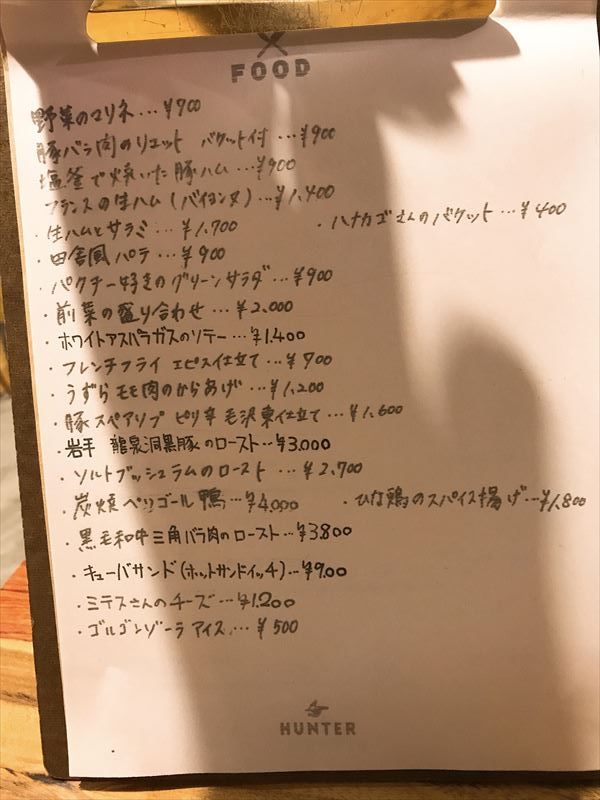 FOOD
野菜のマリネ…¥700
豚バラ肉のリエット バケット付…¥900
塩釜で焼いた豚ハム…¥900
フランスの生ハム(バイヨンヌ)…¥1,400
・生ハムとサラミ…¥1,700
・ハナカゴさんのバケット…¥400
・田舎風パテ…¥900
・パクチー好きのグリーンサラダ…¥900
・前菜の盛り合わせ…¥2,000
・ホワイトアスパラガスのソテー…¥1,400
・フレンチフライ エピス仕立て…¥700
・うずらモモ肉のからあげ…¥1,200
・豚スペアリブ ピリ辛 毛沢東仕立て…¥1,600
・岩手 龍泉洞黒豚のロースト…¥3,000
・ソルトブッシュラムのロースト…¥2,700
・炭焼ペリゴール鴨…¥4,000
・ひな鶏のスパイス揚げ…¥1,800
・黒毛和牛三角バラ肉のロースト…¥3,800
・キューバサンド(ホットサンドイッチ)…¥900
・ミテスさんのチーズ…¥1,200
・ゴルゴンゾーラアイス…¥500
HUNTER